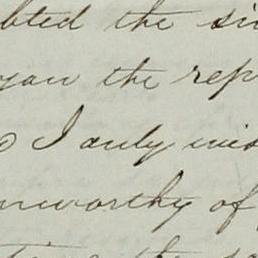 bted the si
gan the rep
I only wis
nworthy of